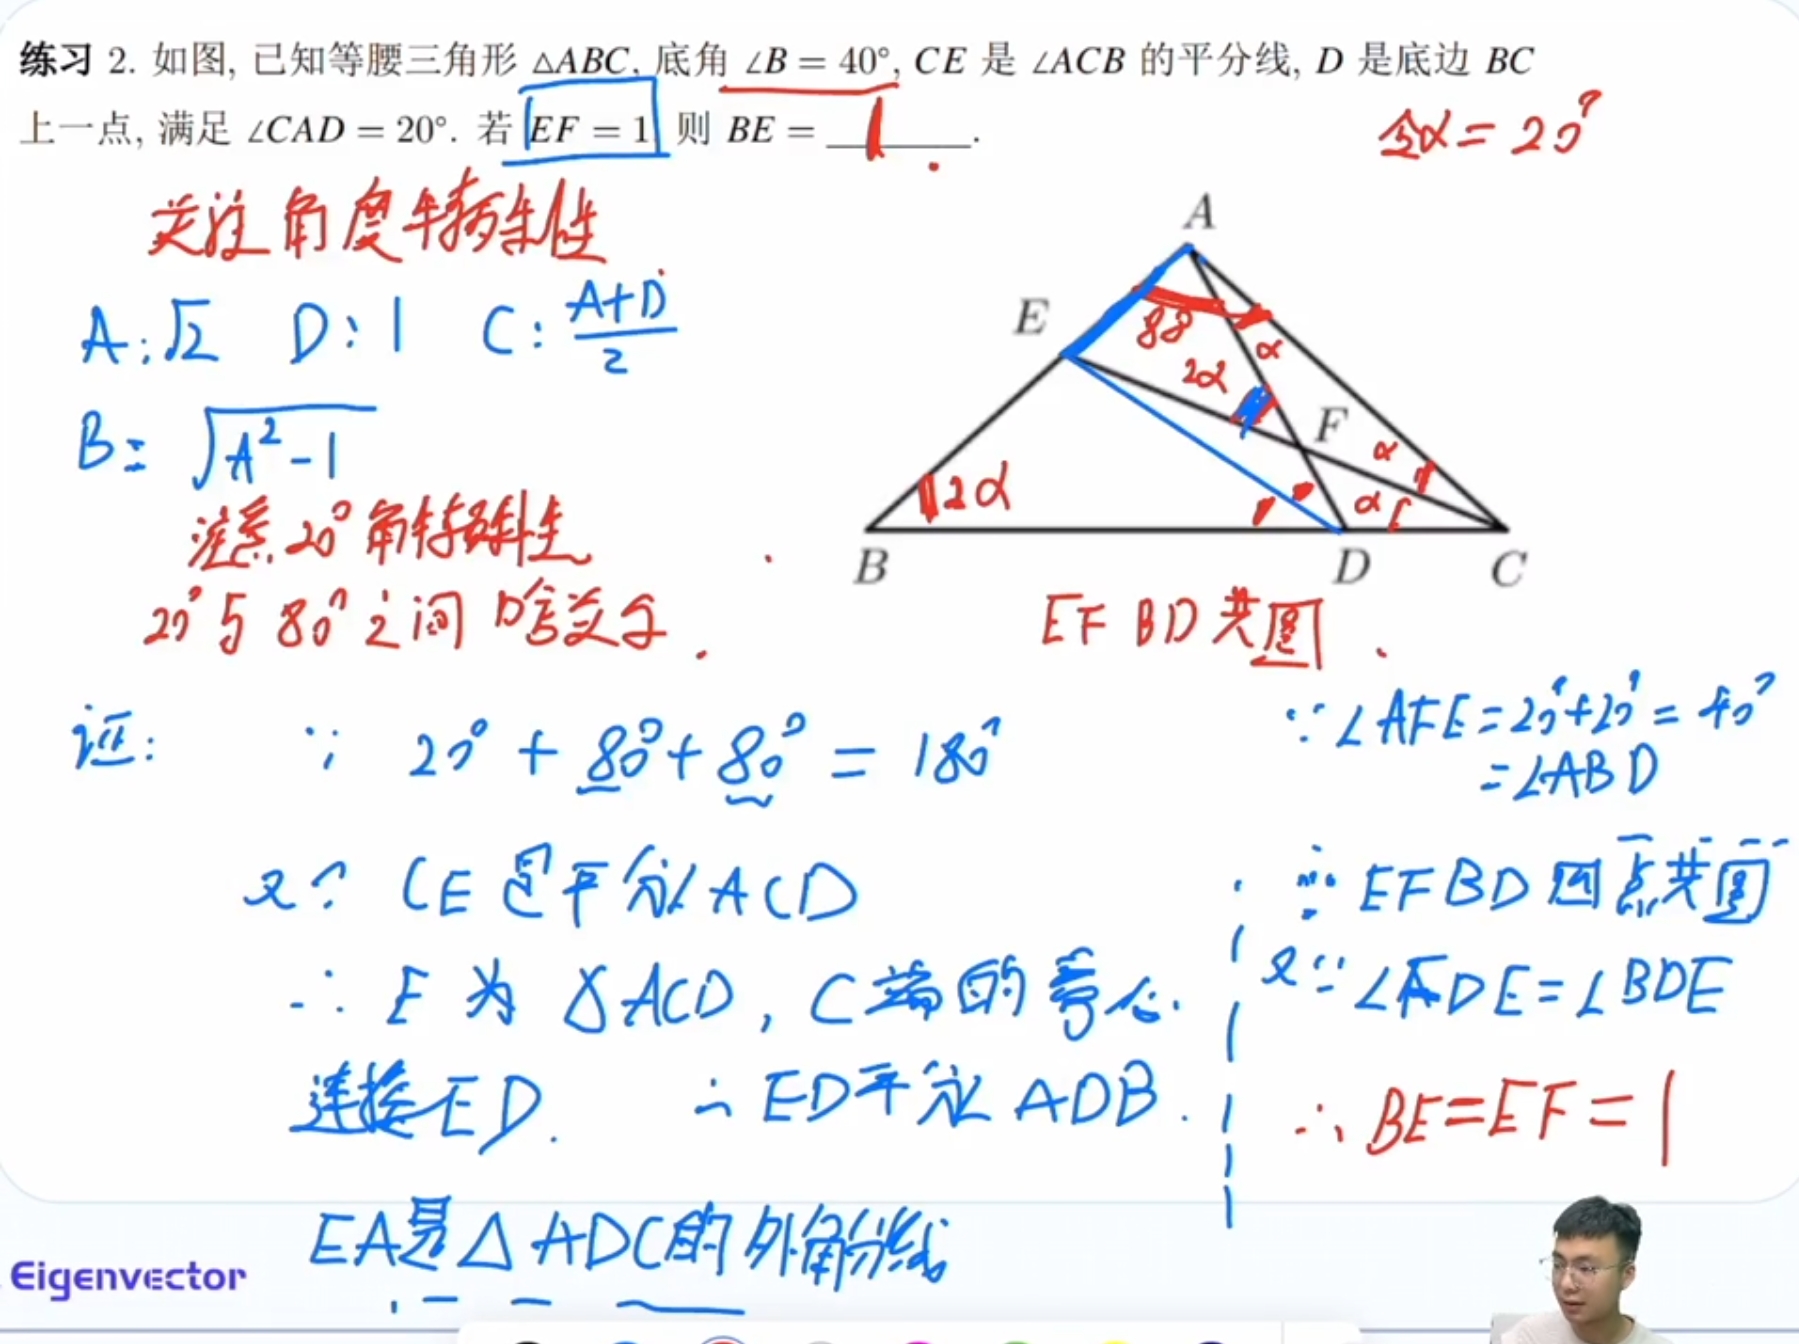 练习 2. 如图, 已知等腰三角形 △ABC, 底角 ∠B = 40°, CE 是 ∠ACB 的平分线, D 是底边 BC
上一点, 满足 ∠CAD = 20°. 若 EF = 1, 则 BE = 1.
令α = 20°
关注角度特殊性
A: √2 D: 1 C: (A+D)/2
B = √(A²-1)
注意 20° 角特殊性
20° 与 80° 之间
A
E
80
α
2α
F
α
2α
α
B
D
C
EF BD 共圆.
证: ∵ 20° + 80° + 80° = 180°
又∵ CE 是平分∠ACD
∴ E 为 △ACD, C 端的旁心.
连接 ED. ∴ ED 平分∠ADB.
EA是△ADC的外角分线
∵ ∠AFE = 20° + 20° = 40°
= ∠ABD
∴ EFBD 四点共圆
又∵ ∠ADE = ∠BDE
∴ BE = EF = 1
Eigenvector